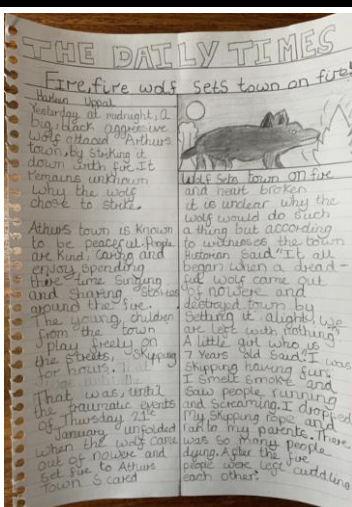 THE DAILY TIMES
Fire, fire wolf sets town on fire!
Harleen Uppal
Yesterday at midnight, a
big, black aggressive
wolf attaced Arthurs
town, by striking it
down with fire. It
remains unknown
why the wolf
chose to strike.
Athurs town is known
to be peaceful. People
are kind, caring and
enjoy spending
there time singing
and sharing stories
around the fire.
The young children
from the town
play freely on
the streets, skipping
for hours.
That was, until
the traumatic events
of Thursday
January unfolded
when the wolf came
out of nowere and
set fire to Athurs
Town scared
Wolf sets town on fire
and heart broken
it is unclear why the
wolf would do such
a thing but according
to witnesses the town
Historian said "It all
began when a dread-
ful wolf came out
of nowere and
destroyed town by
setting it alight, we
are left with nothing"
A little girl who is
7 years old said "I was
skipping having fun,
I smelt smoke and
saw people running
and screaming. I dropped
my skipping rope and
ran to my parents. There
was so many people
dying. After the fire
people were left cuddling
each other."